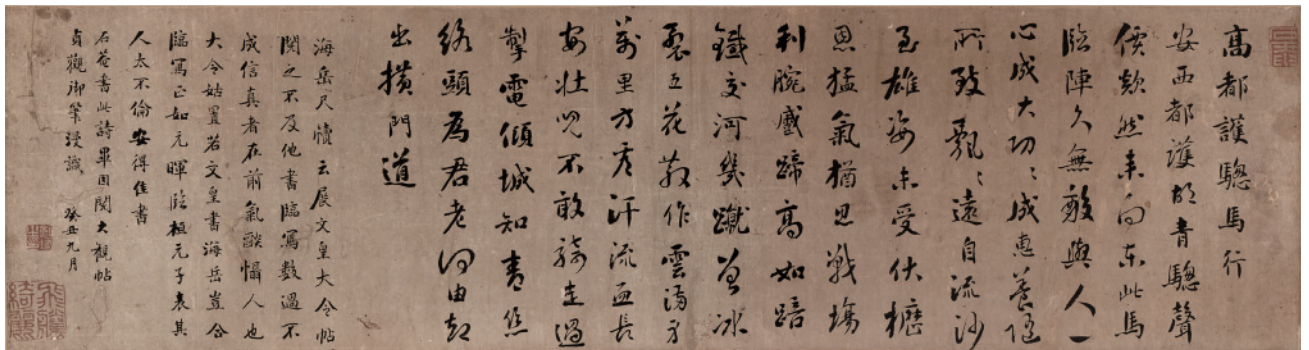 高都護驄馬行
安西都護胡青驄聲
價欻然来向東此馬
臨陣久無敵與人一
心成大功〻成惠養隨
所致飄〻遠自流沙
至雄姿未受伏櫪
恩猛氣猶思戰場
利腕蹙蹄高如踣
鐵交河幾蹴曾冰
裂五花散作雲滿身
萬里方看汗流血長
安壯兒不敢騎走過
掣電傾城知青絲
絡頭為君老何由却
出橫門道
海岳尺牘云展文皇大令帖
閱之不及他書臨寫數過不
成信真者在前氣燄懾人也
大令姑置若文皇書海岳豈合
臨寫正如元暉臨桓元子表其
人太不倫安得佳書
石菴書此詩畢因閱大觀帖
貞觀御筆漫識 癸丑九月